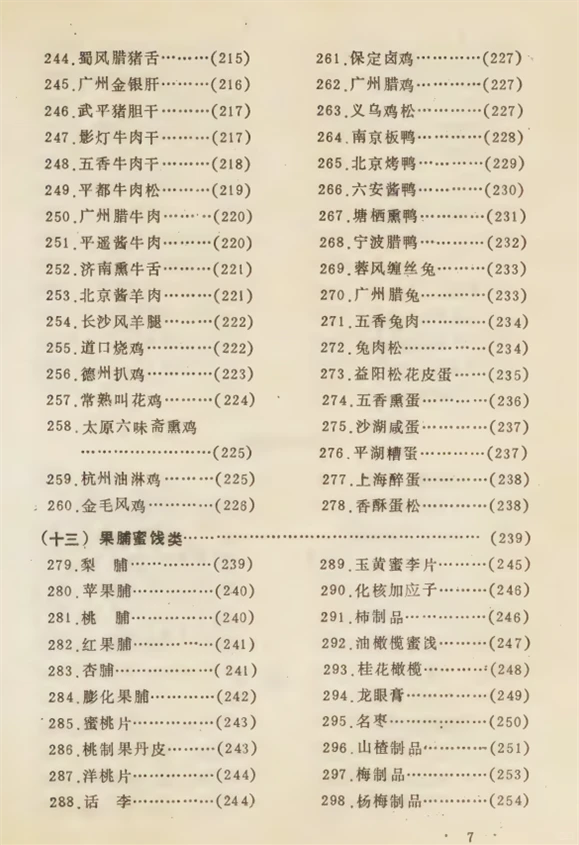 244.蜀风腊猪舌………(215)
245.广州金银肝………(216)
246.武平猪胆干………(217)
247.影灯牛肉干………(217)
248.五香牛肉干………(218)
249.平都牛肉松………(219)
250.广州腊牛肉………(220)
251.平遥酱牛肉………(220)
252.济南熏牛舌………(221)
253.北京酱羊肉………(221)
254.长沙风羊腿………(222)
255.道口烧鸡…………(222)
256.德州扒鸡…………(223)
257.常熟叫花鸡………(224)
258.太原六味斋熏鸡
……………………(225)
259.杭州油淋鸡………(225)
260.金毛风鸡…………(226)
261.保定卤鸡…………(227)
262.广州腊鸡…………(227)
263.义乌鸡松…………(227)
264.南京板鸭…………(228)
265.北京烤鸭…………(229)
266.六安酱鸭…………(230)
267.塘栖熏鸭…………(231)
268.宁波腊鸭…………(232)
269.蓉风缠丝兔………(233)
270.广州腊兔…………(233)
271.五香兔肉…………(234)
272.兔肉松……………(234)
273.益阳松花皮蛋……(235)
274.五香熏蛋…………(236)
275.沙湖咸蛋…………(237)
276.平湖糟蛋…………(237)
277.上海醉蛋…………(238)
278.香酥蛋松…………(238)
(十三) 果脯蜜饯类……………………………………………(239)
279.梨 脯……………(239)
280.苹果脯……………(240)
281.桃 脯……………(240)
282.红果脯……………(241)
283.杏脯………………(241)
284.膨化果脯…………(242)
285.蜜桃片……………(243)
286.桃制果丹皮………(243)
287.洋桃片……………(244)
288.话 李……………(244)
289.玉黄蜜李片………(245)
290.化核加应子………(246)
291.柿制品……………(246)
292.油橄榄蜜浅………(247)
293.桂花橄榄…………(248)
294.龙眼膏……………(249)
295.名枣………………(250)
296.山楂制品…………(251)
297.梅制品……………(253)
298.杨梅制品…………(254)
· 7 ·